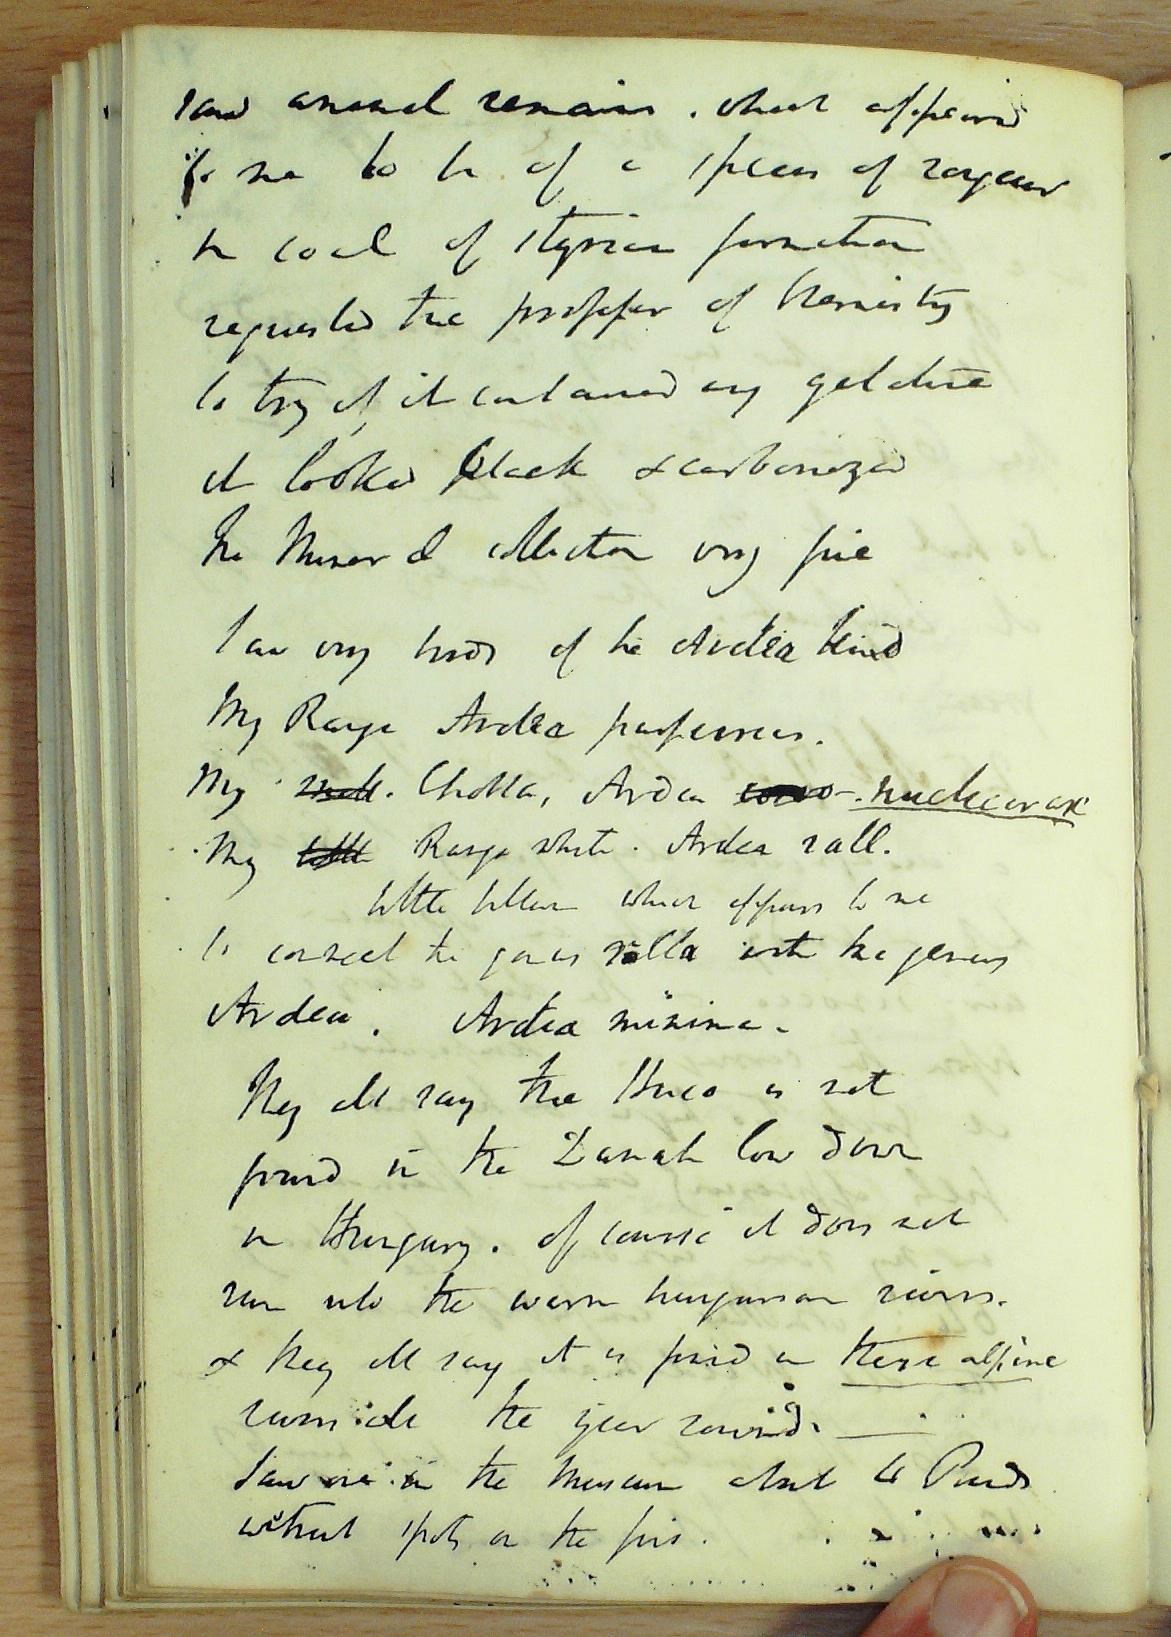 saw animal remains. what appeared
to me to be of a species of
in coal of Styrian formation
requested the proffessor of Chemistry
to try if it contained any gelatine
it looked black & carbonized
The Mineral collection very fine
Saw many birds of the Ardea kind
My Ranga Ardea
My Chotta, Ardea
My Ranga white. Ardea rall.
little bittern which appears to me
to connect the genus ralla with the genus
Ardea. Ardea minima.
They all say the Huco is not
found in the Danube low down
in Hungary. of course it does not
run into the warm hungarian rivers.
& they all say it is found in these alpine
the year round.
Saw one in the Museum about 4 Pounds
without spots on the fins.